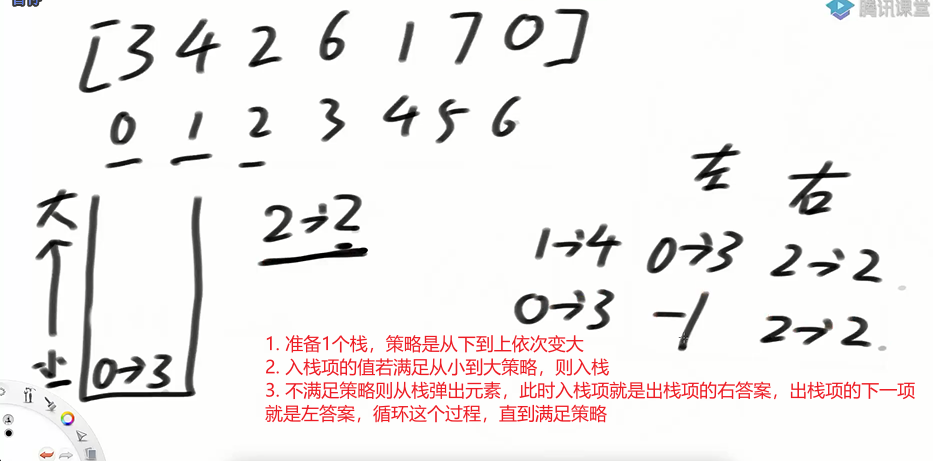 腾讯课堂
[3 4 2 6 1 7 0]
0 1 2 3 4 5 6
左 右
大
2→2
1→4 0→3 2→2
0→3 -1 2→2
小 0→3
1. 准备1个栈，策略是从下到上依次变大
2. 入栈项的值若满足从小到大策略，则入栈
3. 不满足策略则从栈弹出元素，此时入栈项就是出栈项的右答案，出栈项的下一项
就是左答案，循环这个过程，直到满足策略